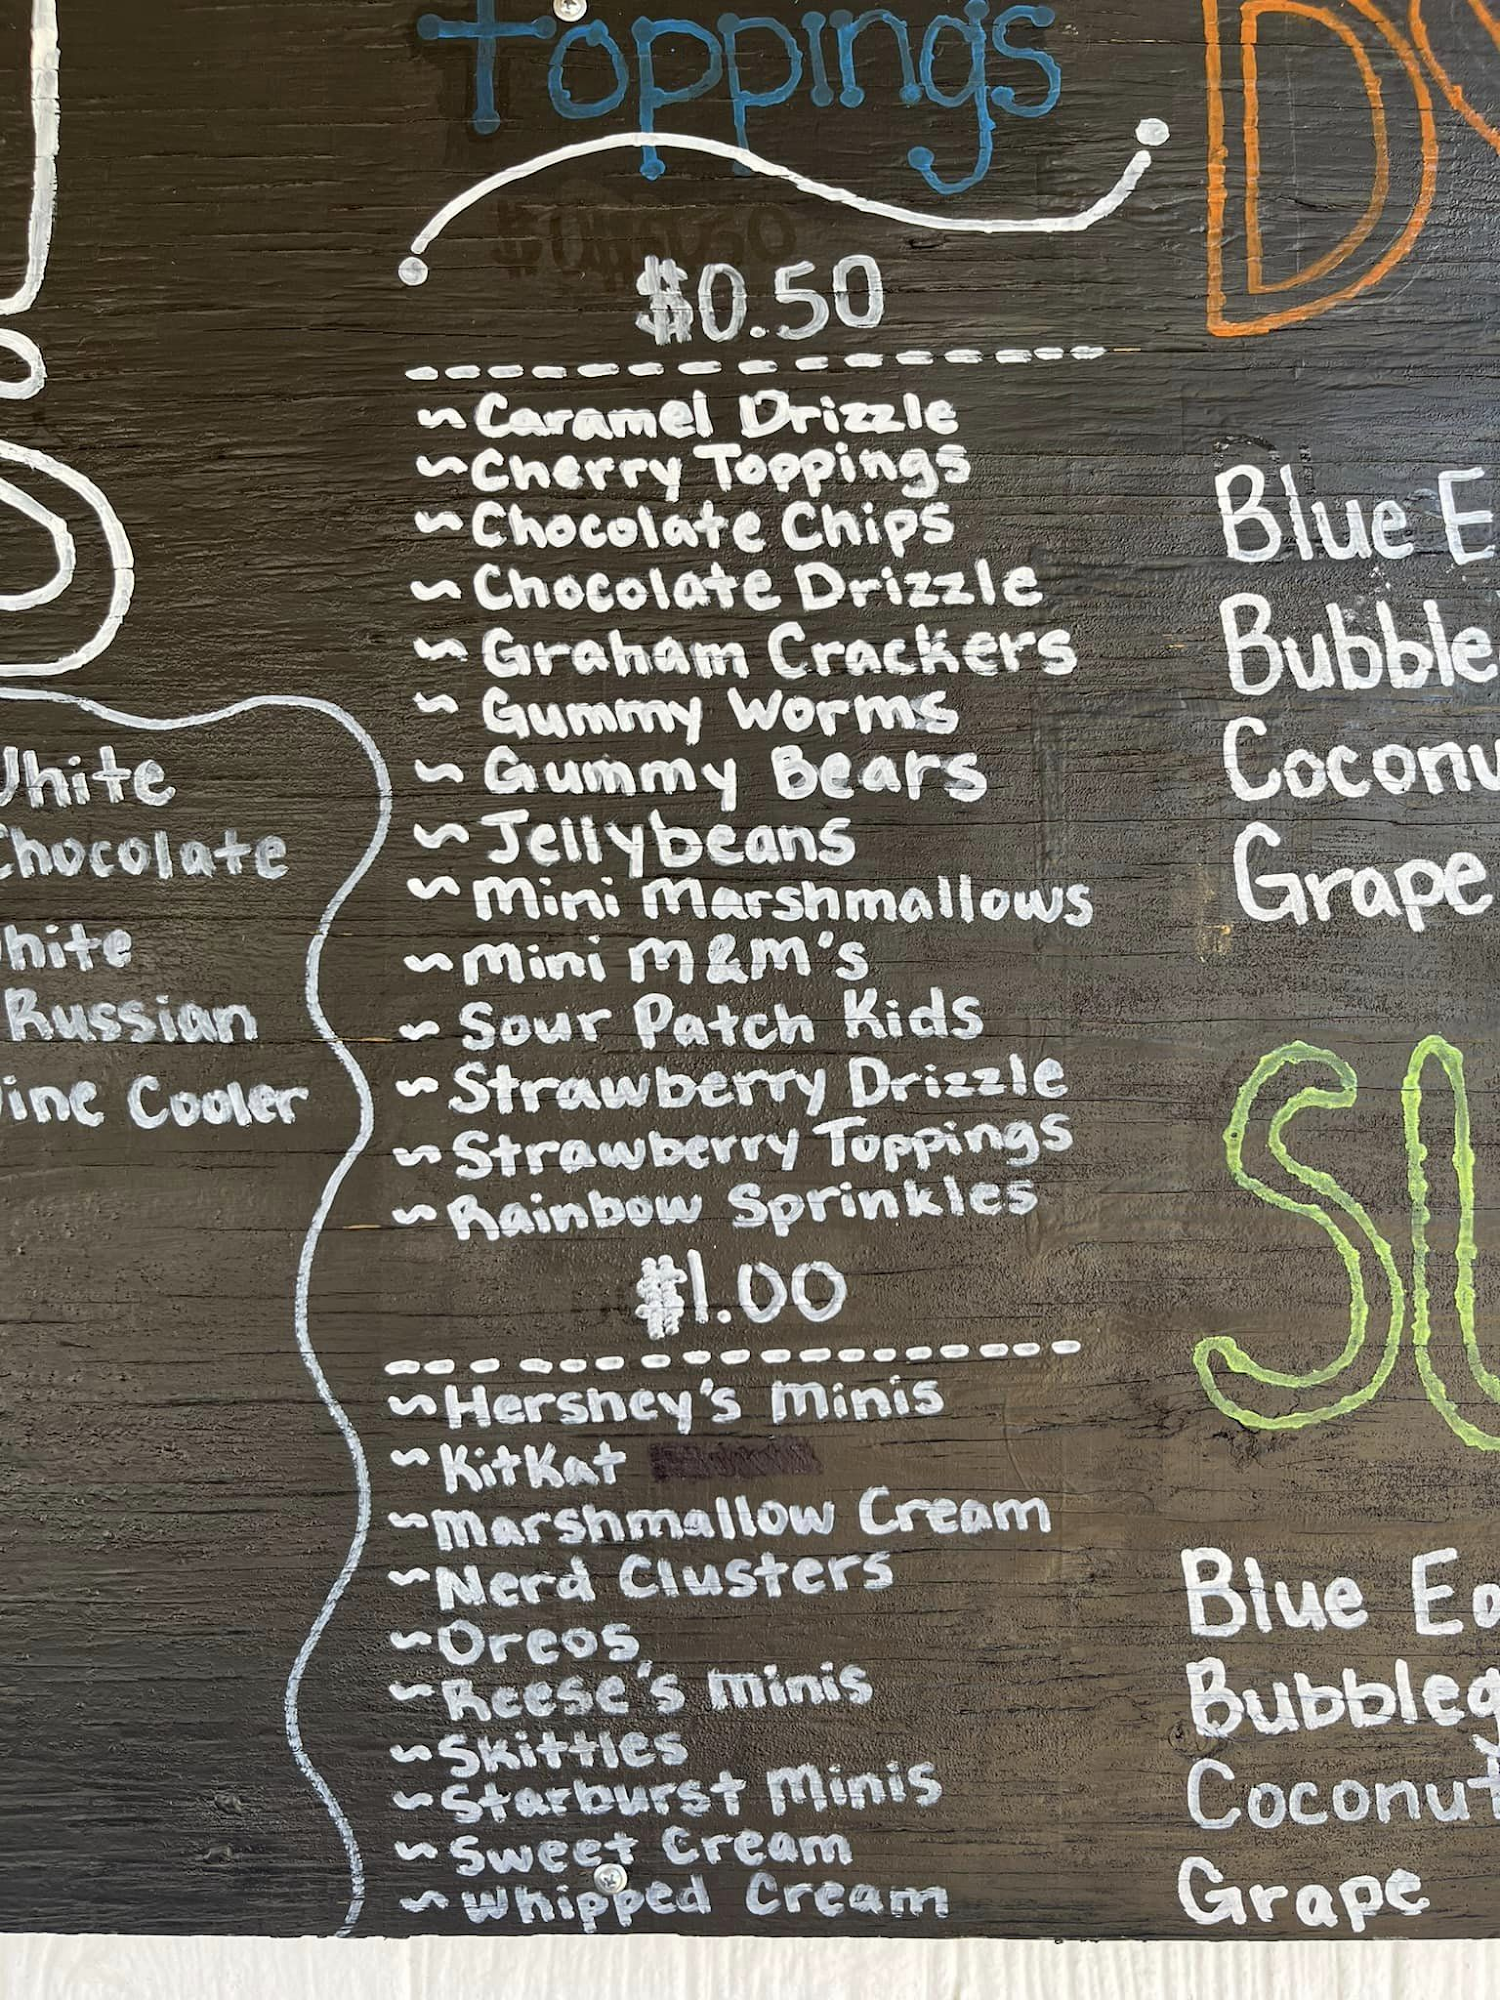 Toppings
$0.50
~ Caramel Drizzle
~ Cherry Toppings
~ Chocolate Chips
~ Chocolate Drizzle
~ Graham Crackers
~ Gummy Worms
~ Gummy Bears
~ Jellybeans
~ Mini Marshmallows
~ Mini M&M's
~ Sour Patch Kids
~ Strawberry Drizzle
~ Strawberry Toppings
~ Rainbow Sprinkles
$1.00
~ Hershey's Minis
~ KitKat
~ Marshmallow Cream
~ Nerd Clusters
~ Oreos
~ Reese's Minis
~ Skittles
~ Starburst Minis
~ Sweet Cream
~ Whipped Cream
White
Chocolate
White
Russian
Cooler
Blue
Bubble
Grape
Blue
Coconut
Grape